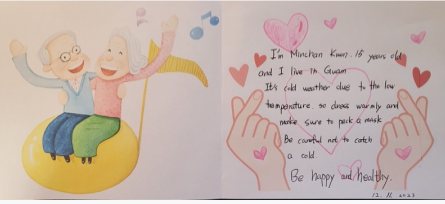 I'm Minchan Kwon. 16 years old
and I live in Guam
It's cold weather due to the low
temperature. so dress warmly and
make sure to pack a mask
Be careful not to catch
a cold.
Be happy and healthy.
12. 11. 2023